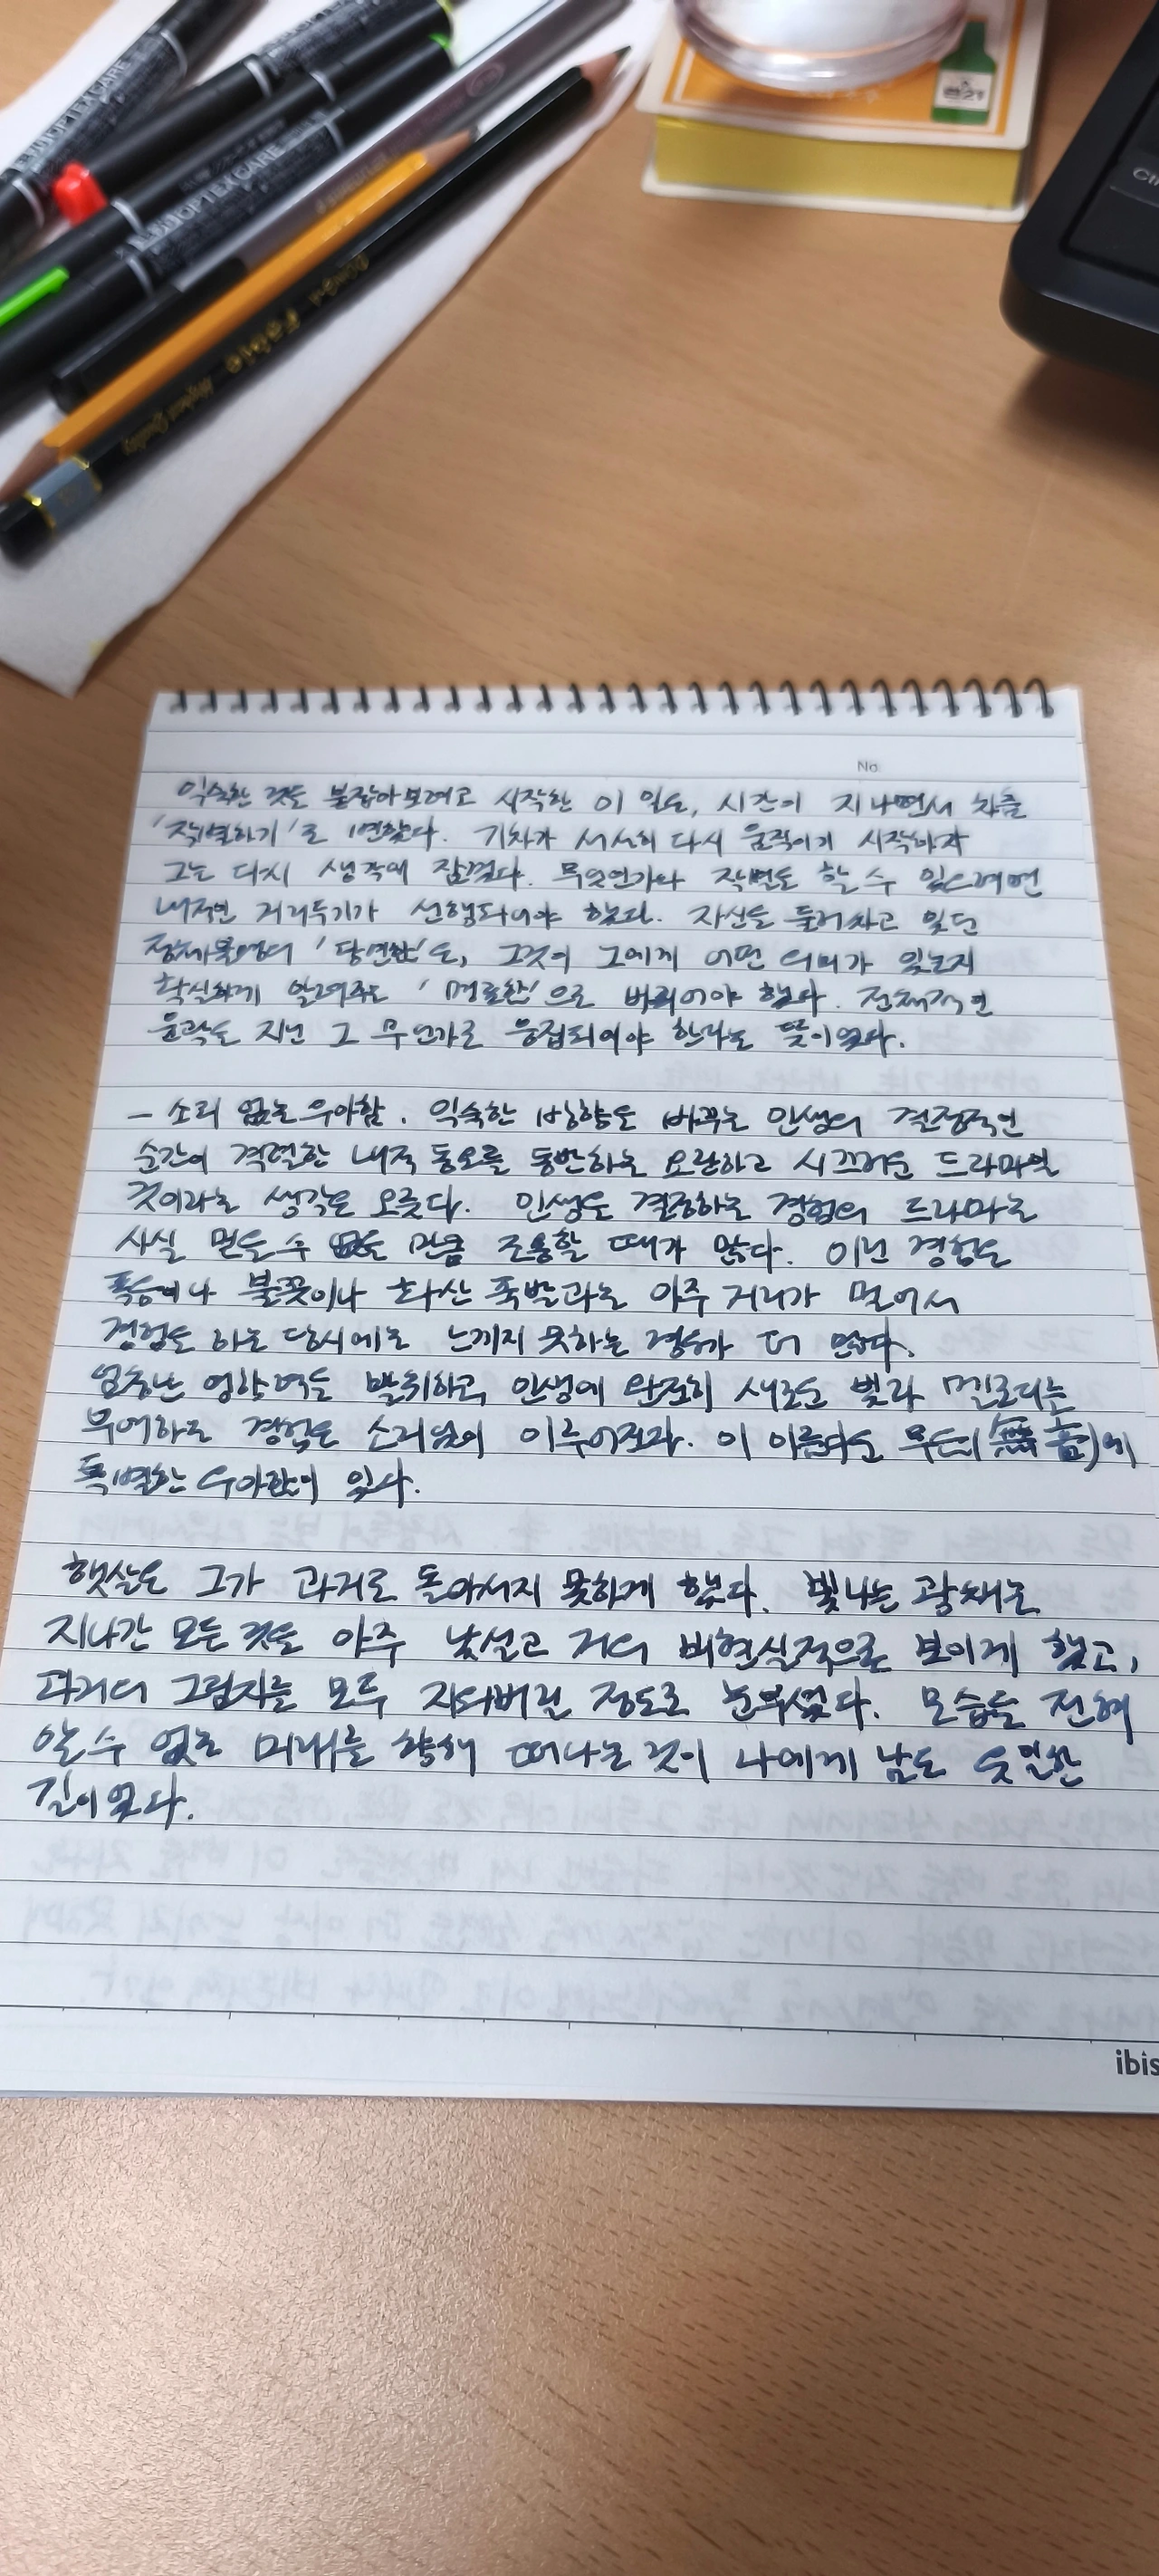 OPTEX CARE
OPTEX CARE
DONG-A Fable Highest Quality
Ctrl
No.
익숙한 것을 붙잡아보려고 시작한 이 일은, 시간이 지나면서 차츰
'작별하기'로 변했다. 기차가 서서히 다시 움직이기 시작하자
그는 다시 생각에 잠겼다. 무엇인가와 작별을 할 수 있으려면
내적인 거리두기가 선행되어야 했다. 자신을 둘러싸고 있던
정체불명의 '당연함'은, 그것이 그에게 어떤 의미가 있는지
확실하게 알려주는 '명료함'으로 바뀌어야 했다. 전체적인
윤곽을 지닌 그 무언가로 응집되어야 한다는 뜻이었다.
- 소리 없는 우아함. 익숙한 방향을 바꾸는 인생의 결정적인
순간이 격렬한 내적 동요를 동반하는 요란하고 시끄러운 드라마일
것이라는 생각은 오류다. 인생을 결정하는 경험의 드라마는
사실 믿을 수 없을 만큼 조용할 때가 많다. 이런 경험은
폭음이나 불꽃이나 화산 폭발과는 아주 거리가 멀어서
경험을 하는 당시에는 느끼지 못하는 경우가 더 많다.
엄청난 영향력을 발휘하고, 인생에 완전히 새로운 빛과 멜로디를
부여하는 경험은 소리없이 이루어진다. 이 아름다운 무음(無音)에
특별한 우아함이 있다.
햇살은 그가 과거로 돌아서지 못하게 했다. 빛나는 광채는
지나간 모든 것을 아주 낯설고 거의 비현실적으로 보이게 했고,
과거의 그림자를 모두 지워버릴 정도로 눈부셨다. 모습을 전혀
알 수 없는 미래를 향해 떠나는 것이 나에게 남은 유일한
길이었다.
ibis